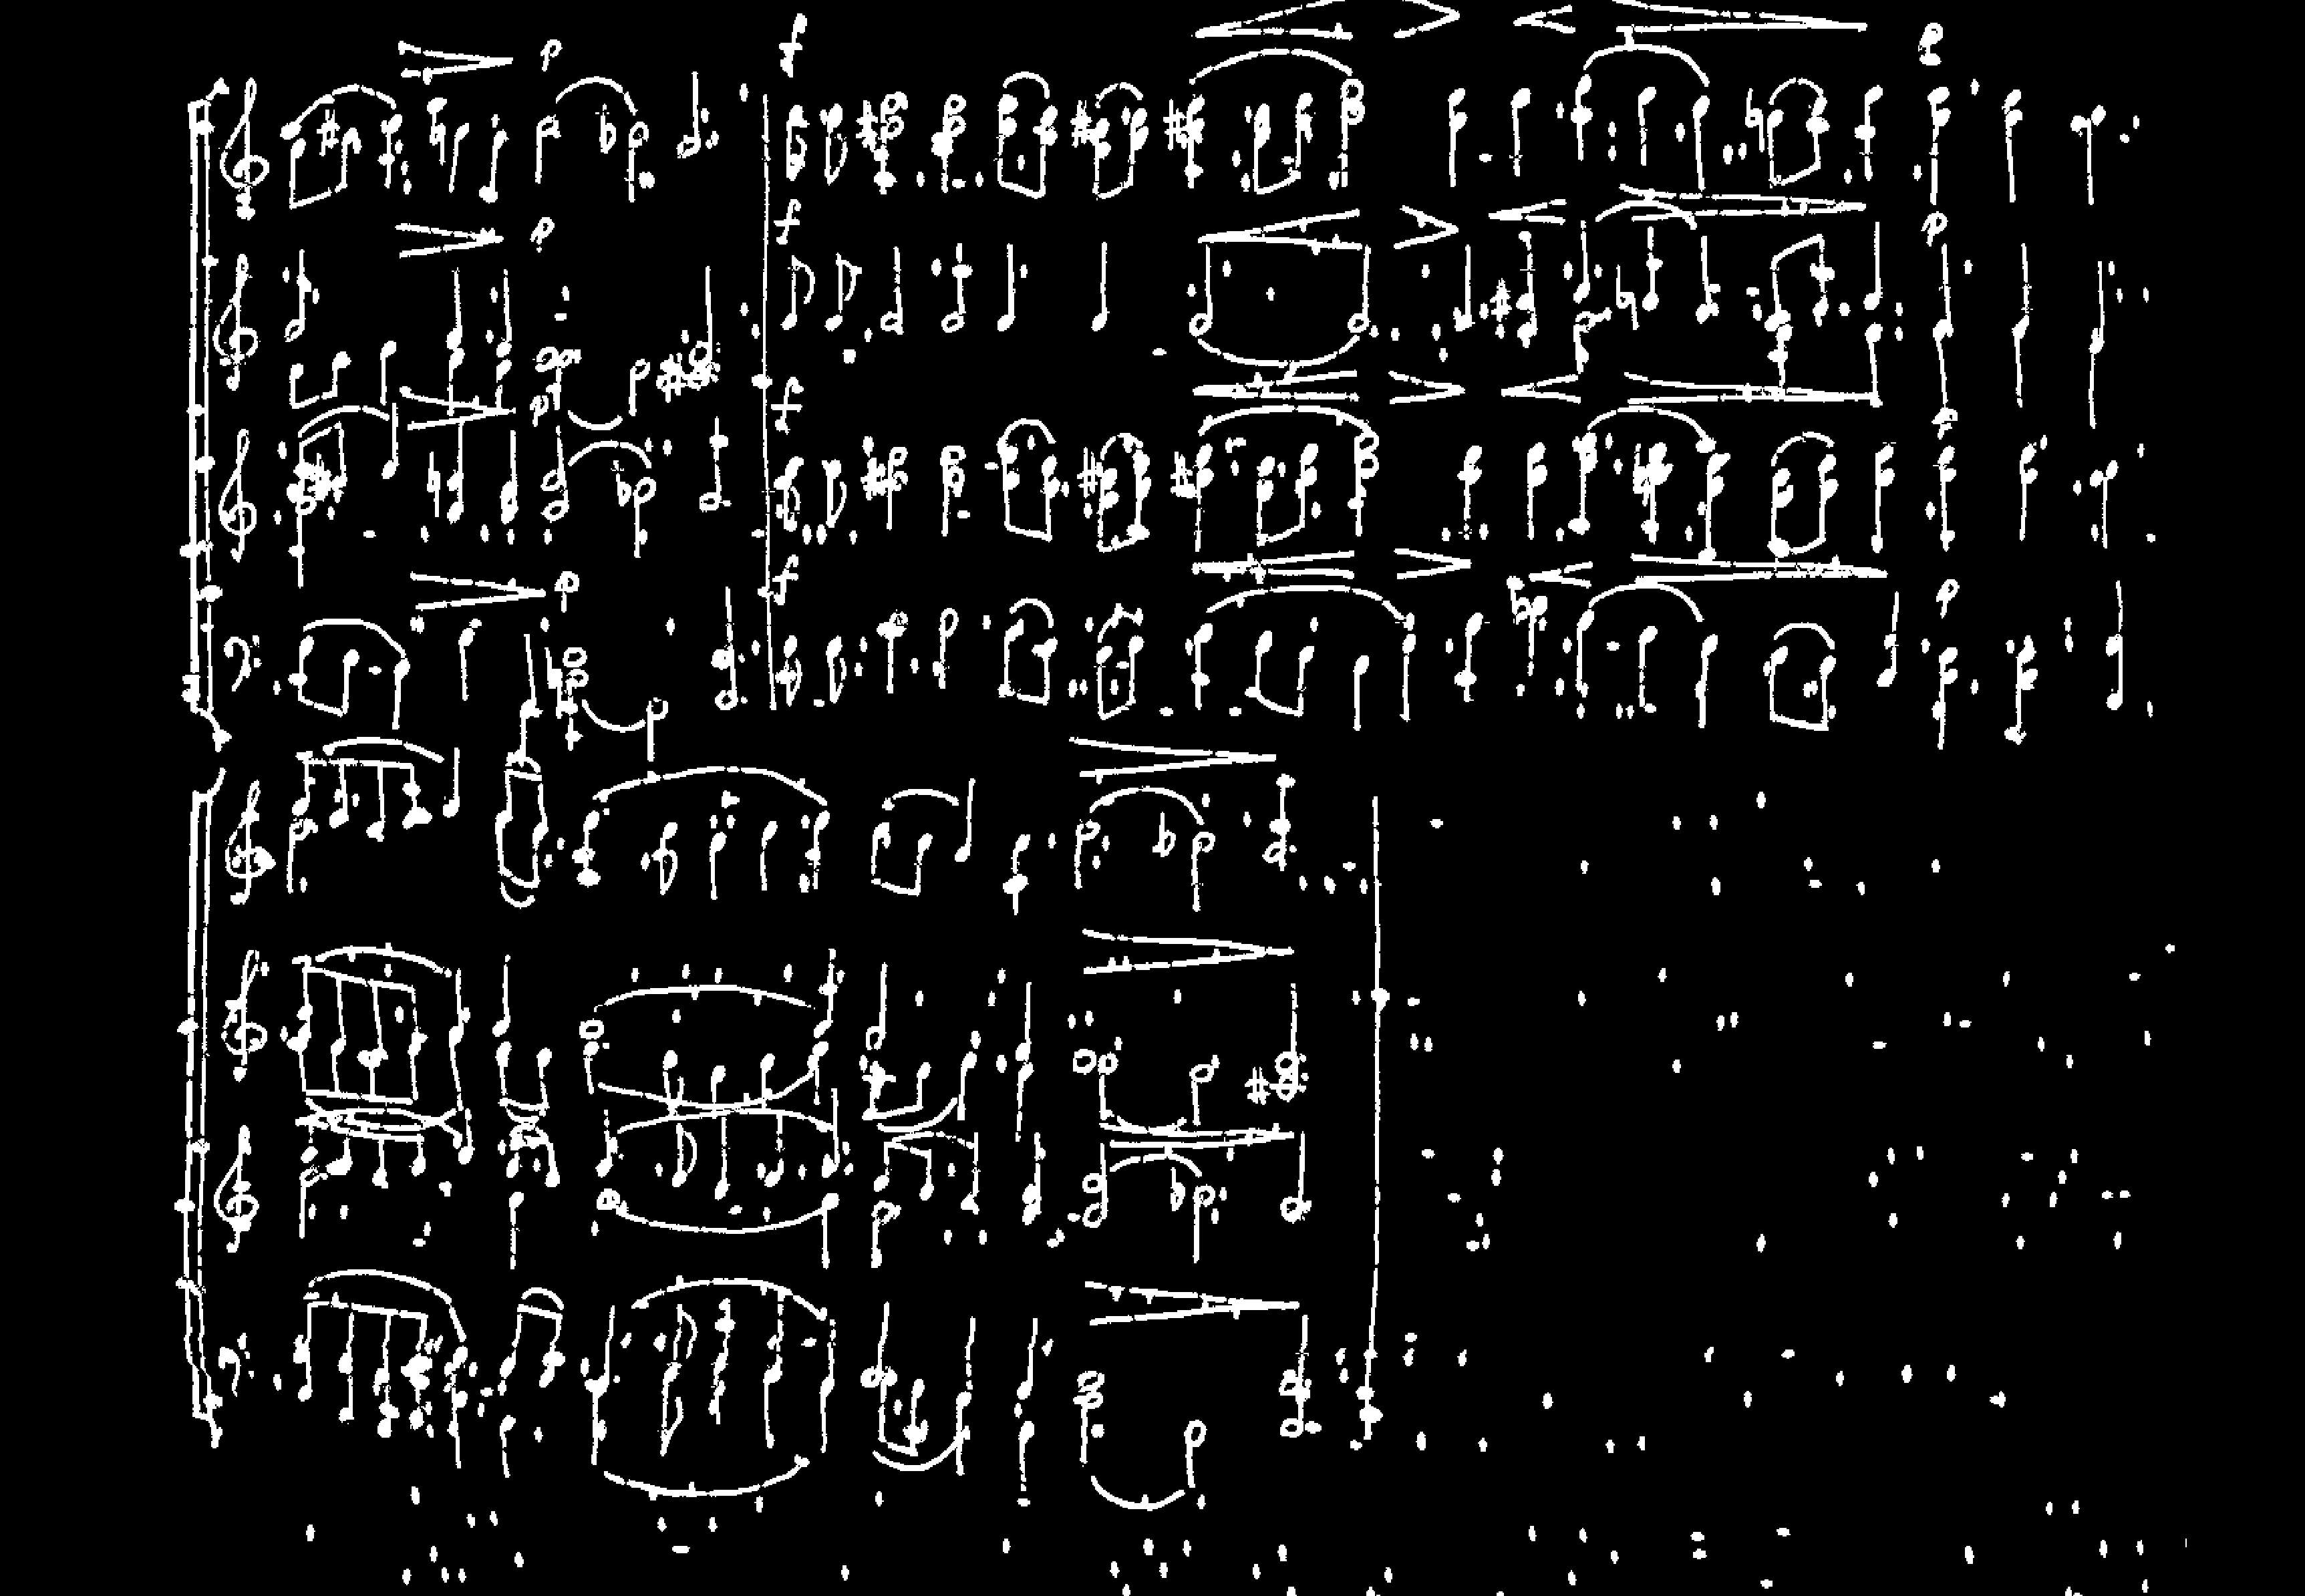 p f p
p f p
p f
p f p